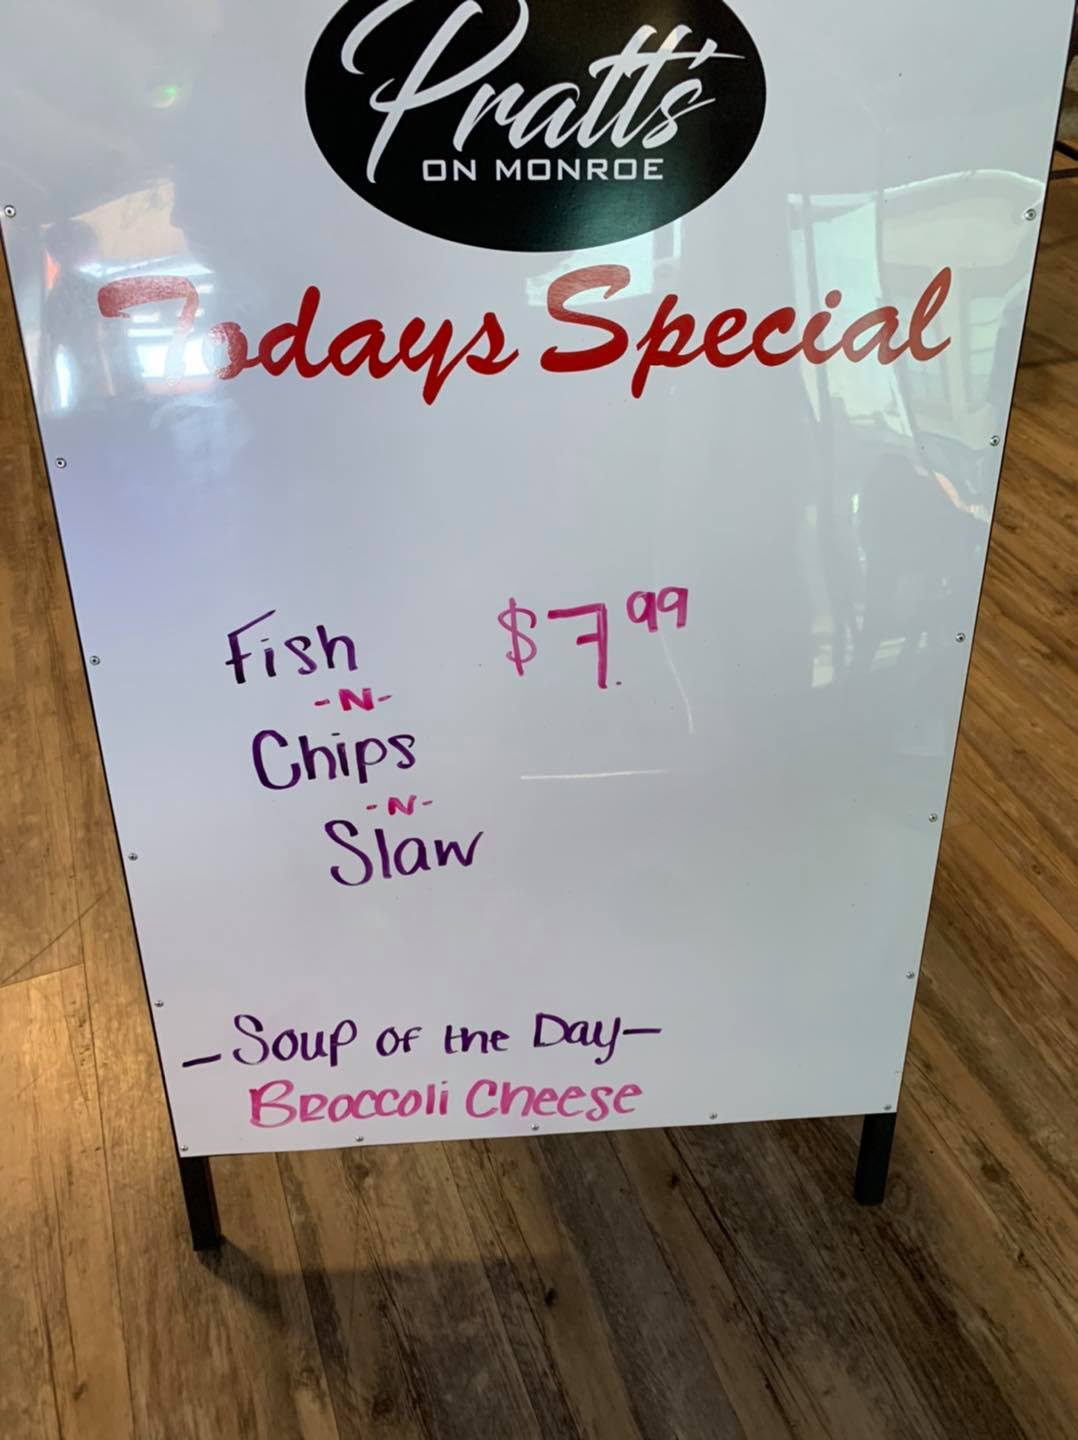 Pratt's
ON MONROE
Todays Special
Fish $7.99
-N-
Chips
-N-
Slaw
- Soup of the Day -
Broccoli Cheese